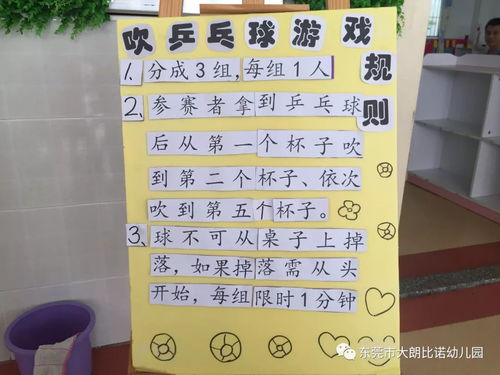 吹乒乓球游戏规则
1.分成3组,每组1人
2、参赛者拿到乒乓球
后从第一个杯子吹
到第二个杯子、依次
吹到第五个杯子。
3、球不可从桌子上掉
落,如果掉落需从头
开始,每组限时1分钟
东莞市大朗比诺幼儿园